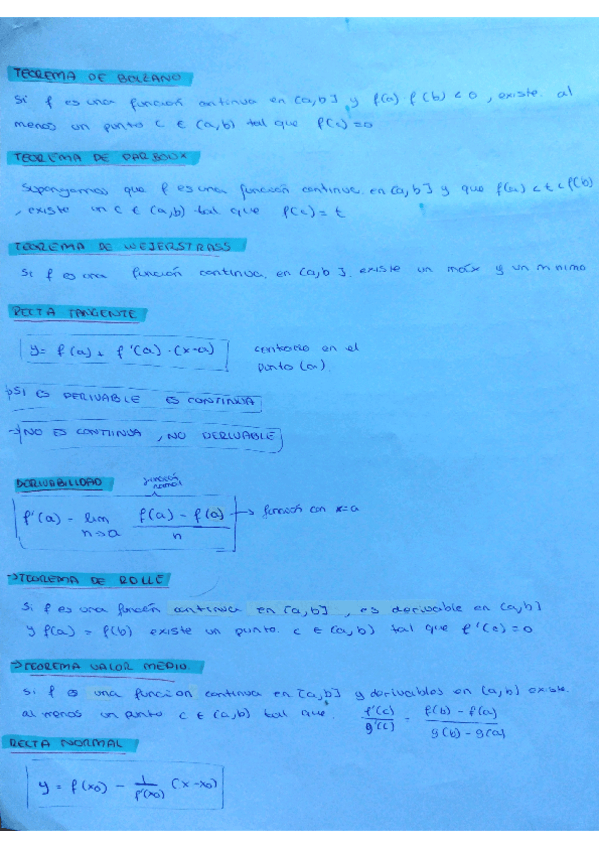 TEOREMA DE BOLZANO
Si f es una función continua en [a,b] y f(a) f(b) < 0, existe al
menos un punto c ∈ (a,b) tal que f(c)=0
TEOREMA DE DARBOUX
Supongamos que f es una función continua en [a,b] y que f(a) < t < f(b)
, existe un c ∈ (a,b) tal que f(c)= t
TEOREMA DE WEJERSTRASS
Si f es una función continua en [a,b]. existe un máx y un mínimo
RECTA TANGENTE
y= f(a) + f'(a) · (x-a) contacto en el
punto (a)
→ SI ES DERIVABLE ES CONTINUA
→ NO ES CONTINUA, NO DERIVABLE
DERIVABILIDAD función normal
f'(a) = lim n→a f(a) - f(a) / n → función con x=a
→ TEOREMA DE ROLLE
Si f es una función continua en [a,b], es derivable en (a,b)
y f(a) = f(b) existe un punto c ∈ (a,b) tal que f'(c)=0
→ TEOREMA VALOR MEDIO.
Si f es una función continua en [a,b] y derivables en (a,b) existe.
al menos un punto c ∈ (a,b) tal que. f'(c)/g'(c) = f(b) - f(a) / g(b) - g(a)
RECTA NORMAL
y = f(x0) - 1/f'(x0) (x-x0)